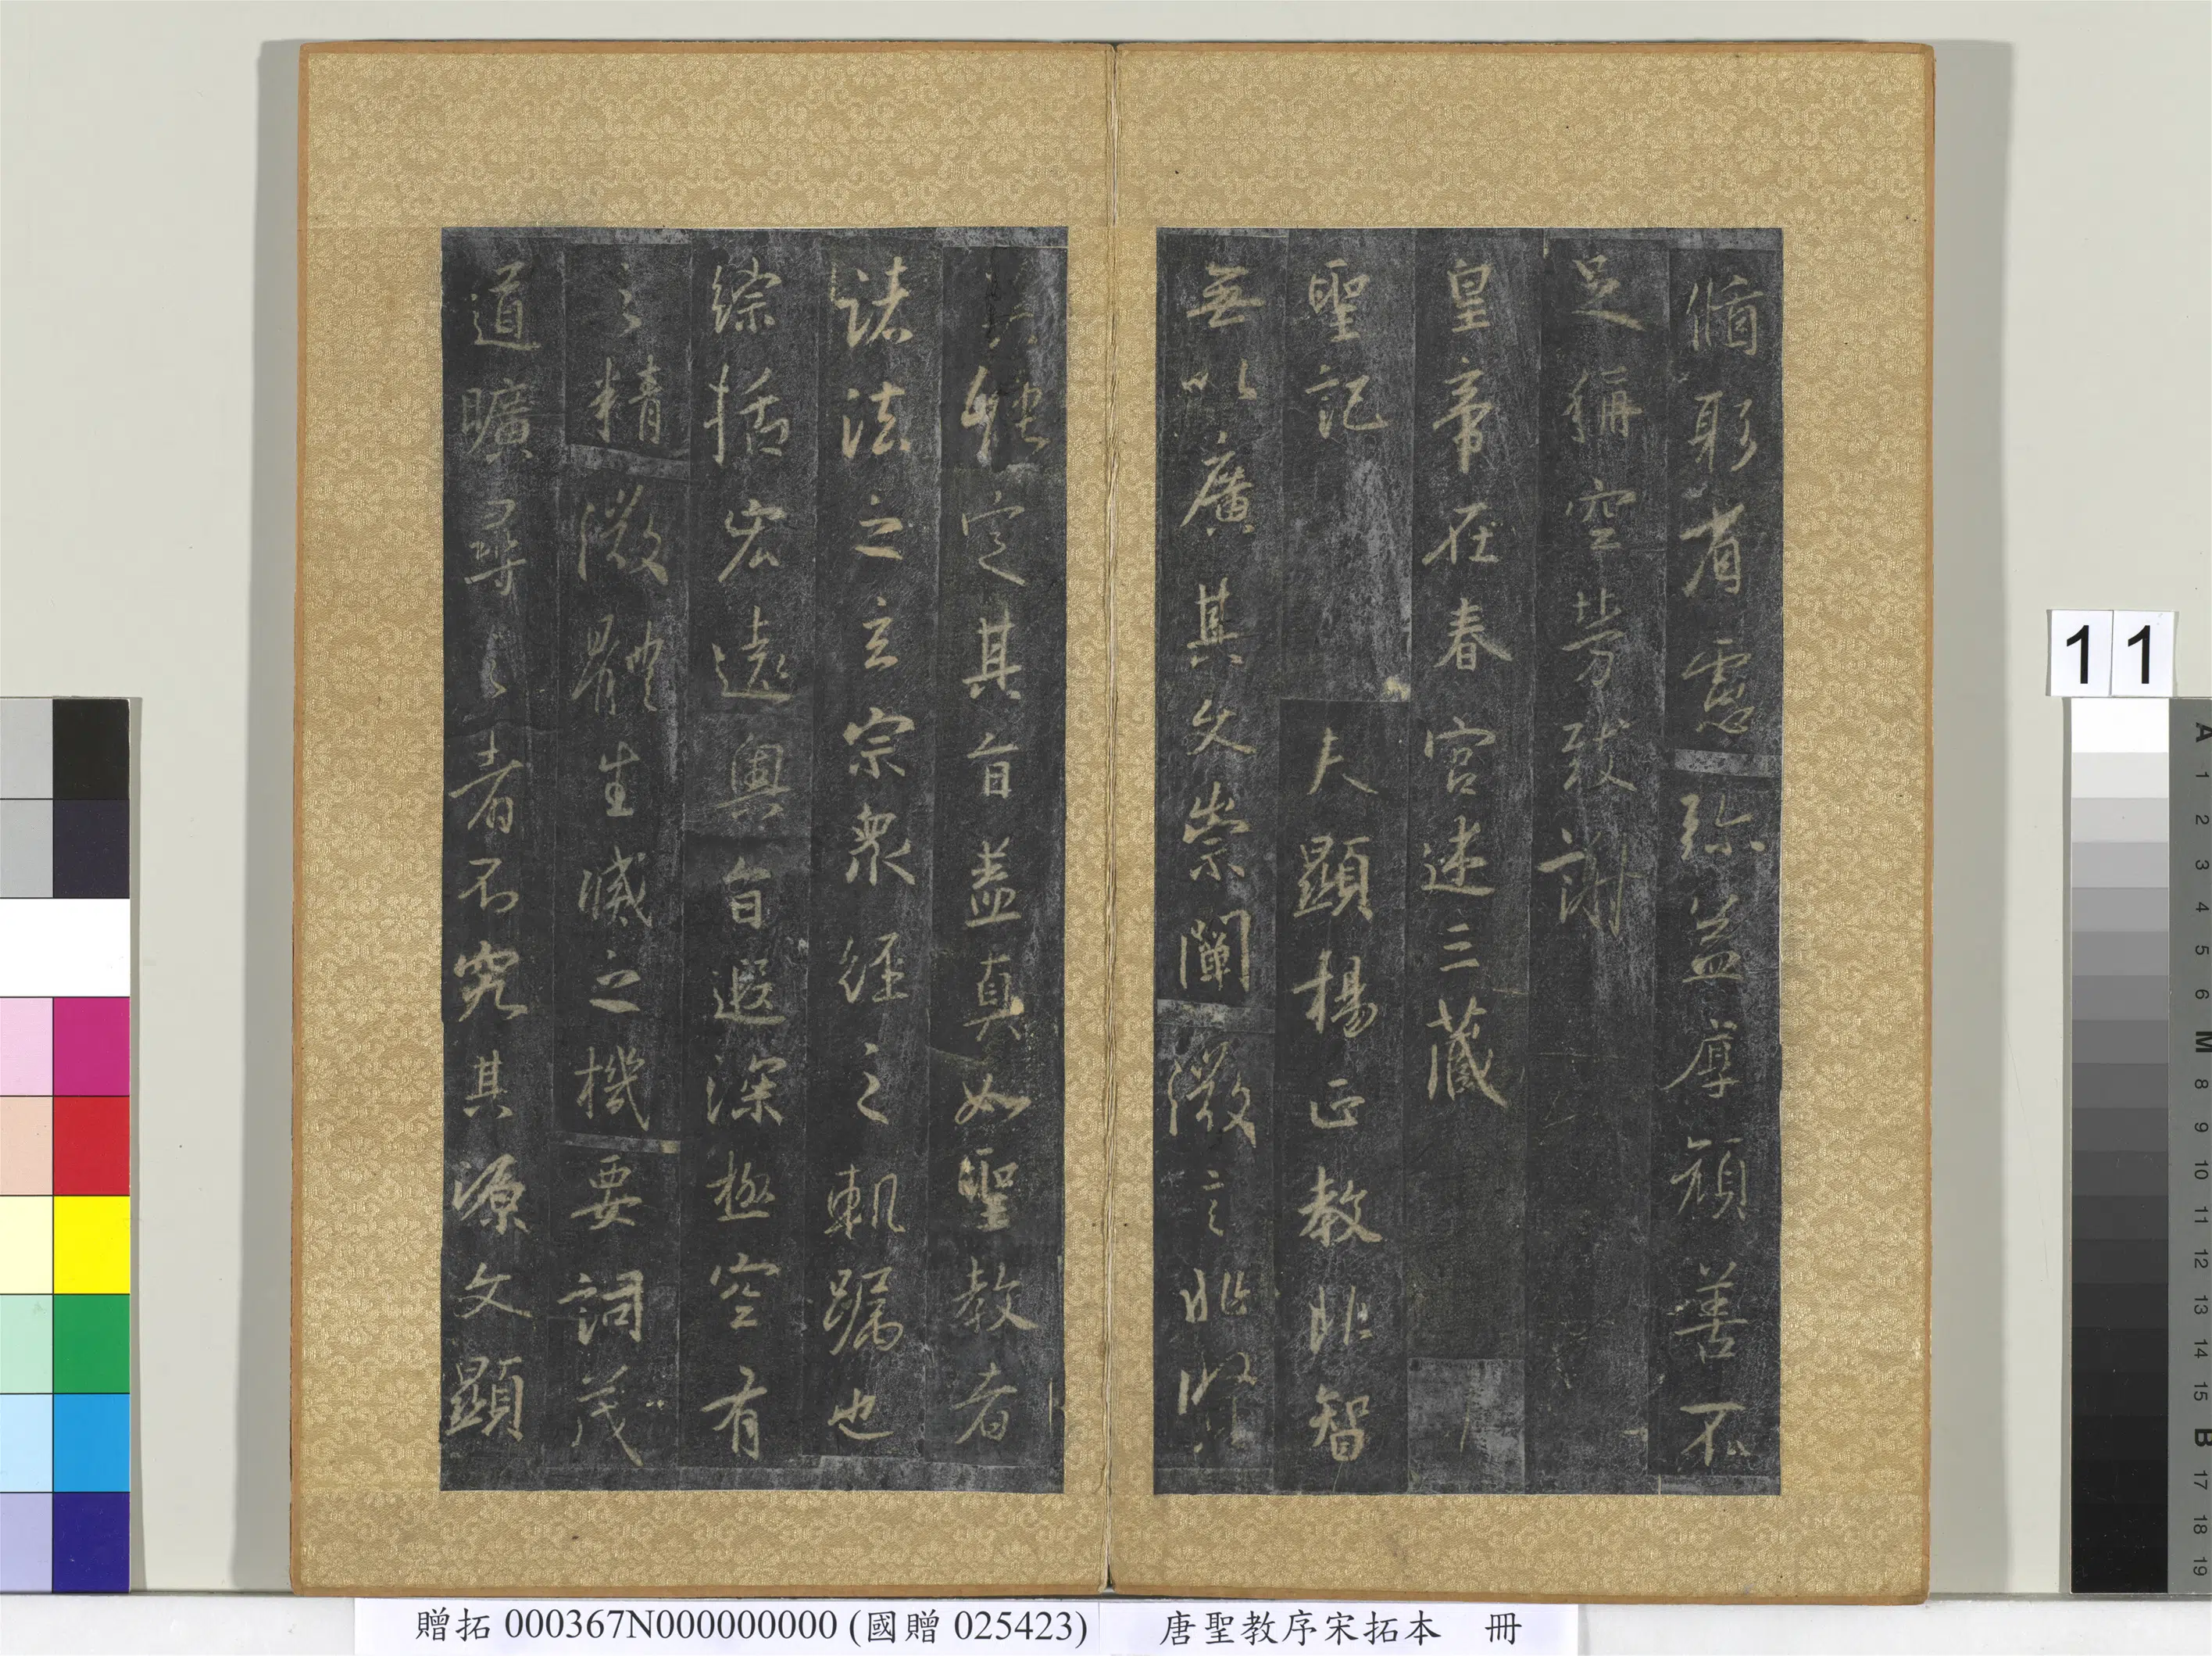 脩躬省慮弥益厚顏善不
足稱空勞致謝
皇帝在春宮述三藏
聖記 夫顯揚正教非智
無以廣其文崇闡微言非賢
莫能定其旨蓋真如聖教者
諸法之玄宗衆經之軌躅也
綜括宏遠奧旨遐深極空有
之精微體生滅之機要詞茂
道曠尋之者不究其源文顯
11
A 1 2 3 4 5 6 M 8 9 10 11 12 13 14 15 B 17 18 19
贈拓 000367N000000000 (國贈 025423) 唐聖教序宋拓本 冊